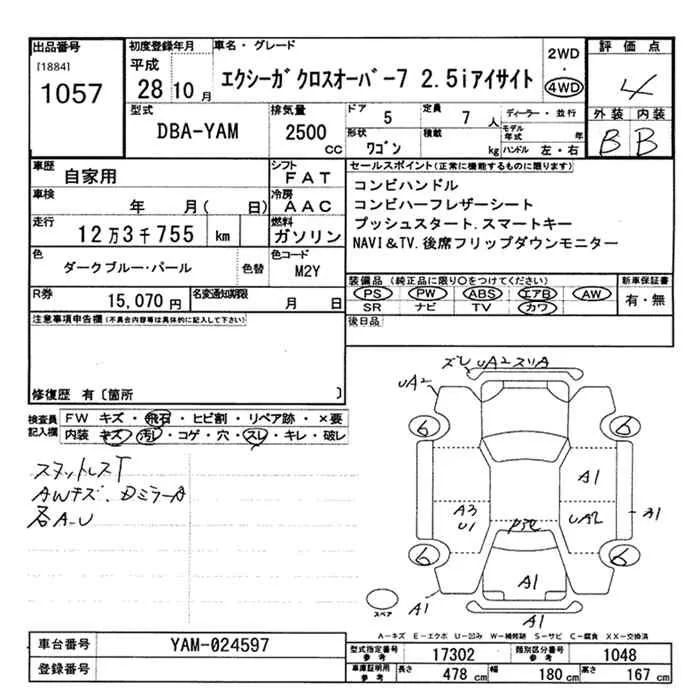 出品番号 初度登録年月 車名・グレード 2WD・4WD 評価点
[1884] 1057 平成 28 10月 エクシーガ クロスオーバー7 2.5iアイサイト 4
型式 DBA-YAM 排気量 2500 cc ドア 5 定員 7人 ディーラー・並行 外装 内装
形状 ワゴン 積載 kg モデル年式 年 ハンドル 左・右 B B
車歴 自家用 シフト FAT セールスポイント(正常に機能するものに限ります)
車検 年 月( 日) 冷房 AAC コンビハンドル
コンビハーフレザーシート
走行 12万3千755 km 燃料 ガソリン プッシュスタート.スマートキー
NAVI&TV.後席フリップダウンモニター
色 ダークブルー・パール 色替 色コード M2Y
装備品 (純正品に限り○をつけてください) 新車保証書
PS PW ABS エアB AW 有・無
SR ナビ TV カワ
R券 15,070円 名変通知期限 月 日
後日品
注意事項申告欄(不具合内容等は具体的に記入して下さい)
修復歴 有〔箇所 〕
検査員記入欄 FW キズ・飛石・ヒビ割・リペア跡・×要
内装 キズ・汚レ・コゲ・穴・スレ・キレ・破レ
スタットレスT
AWキズ.
各A-U
ズレ UA2 スリA
UA2
6 6
A1
A3 U1 UA2 A1
6 6
A1
A1 A1
スペア
A-キズ E-エクボ U-凹み W-補修跡 S-サビ C-腐食 XX-交換済
車台番号 YAM-024597
登録番号
型式指定番号 参考 17302 類別区分番号 参考 1048
車庫証明用 参考 長さ 478 cm 幅 180 cm 高さ 167 cm